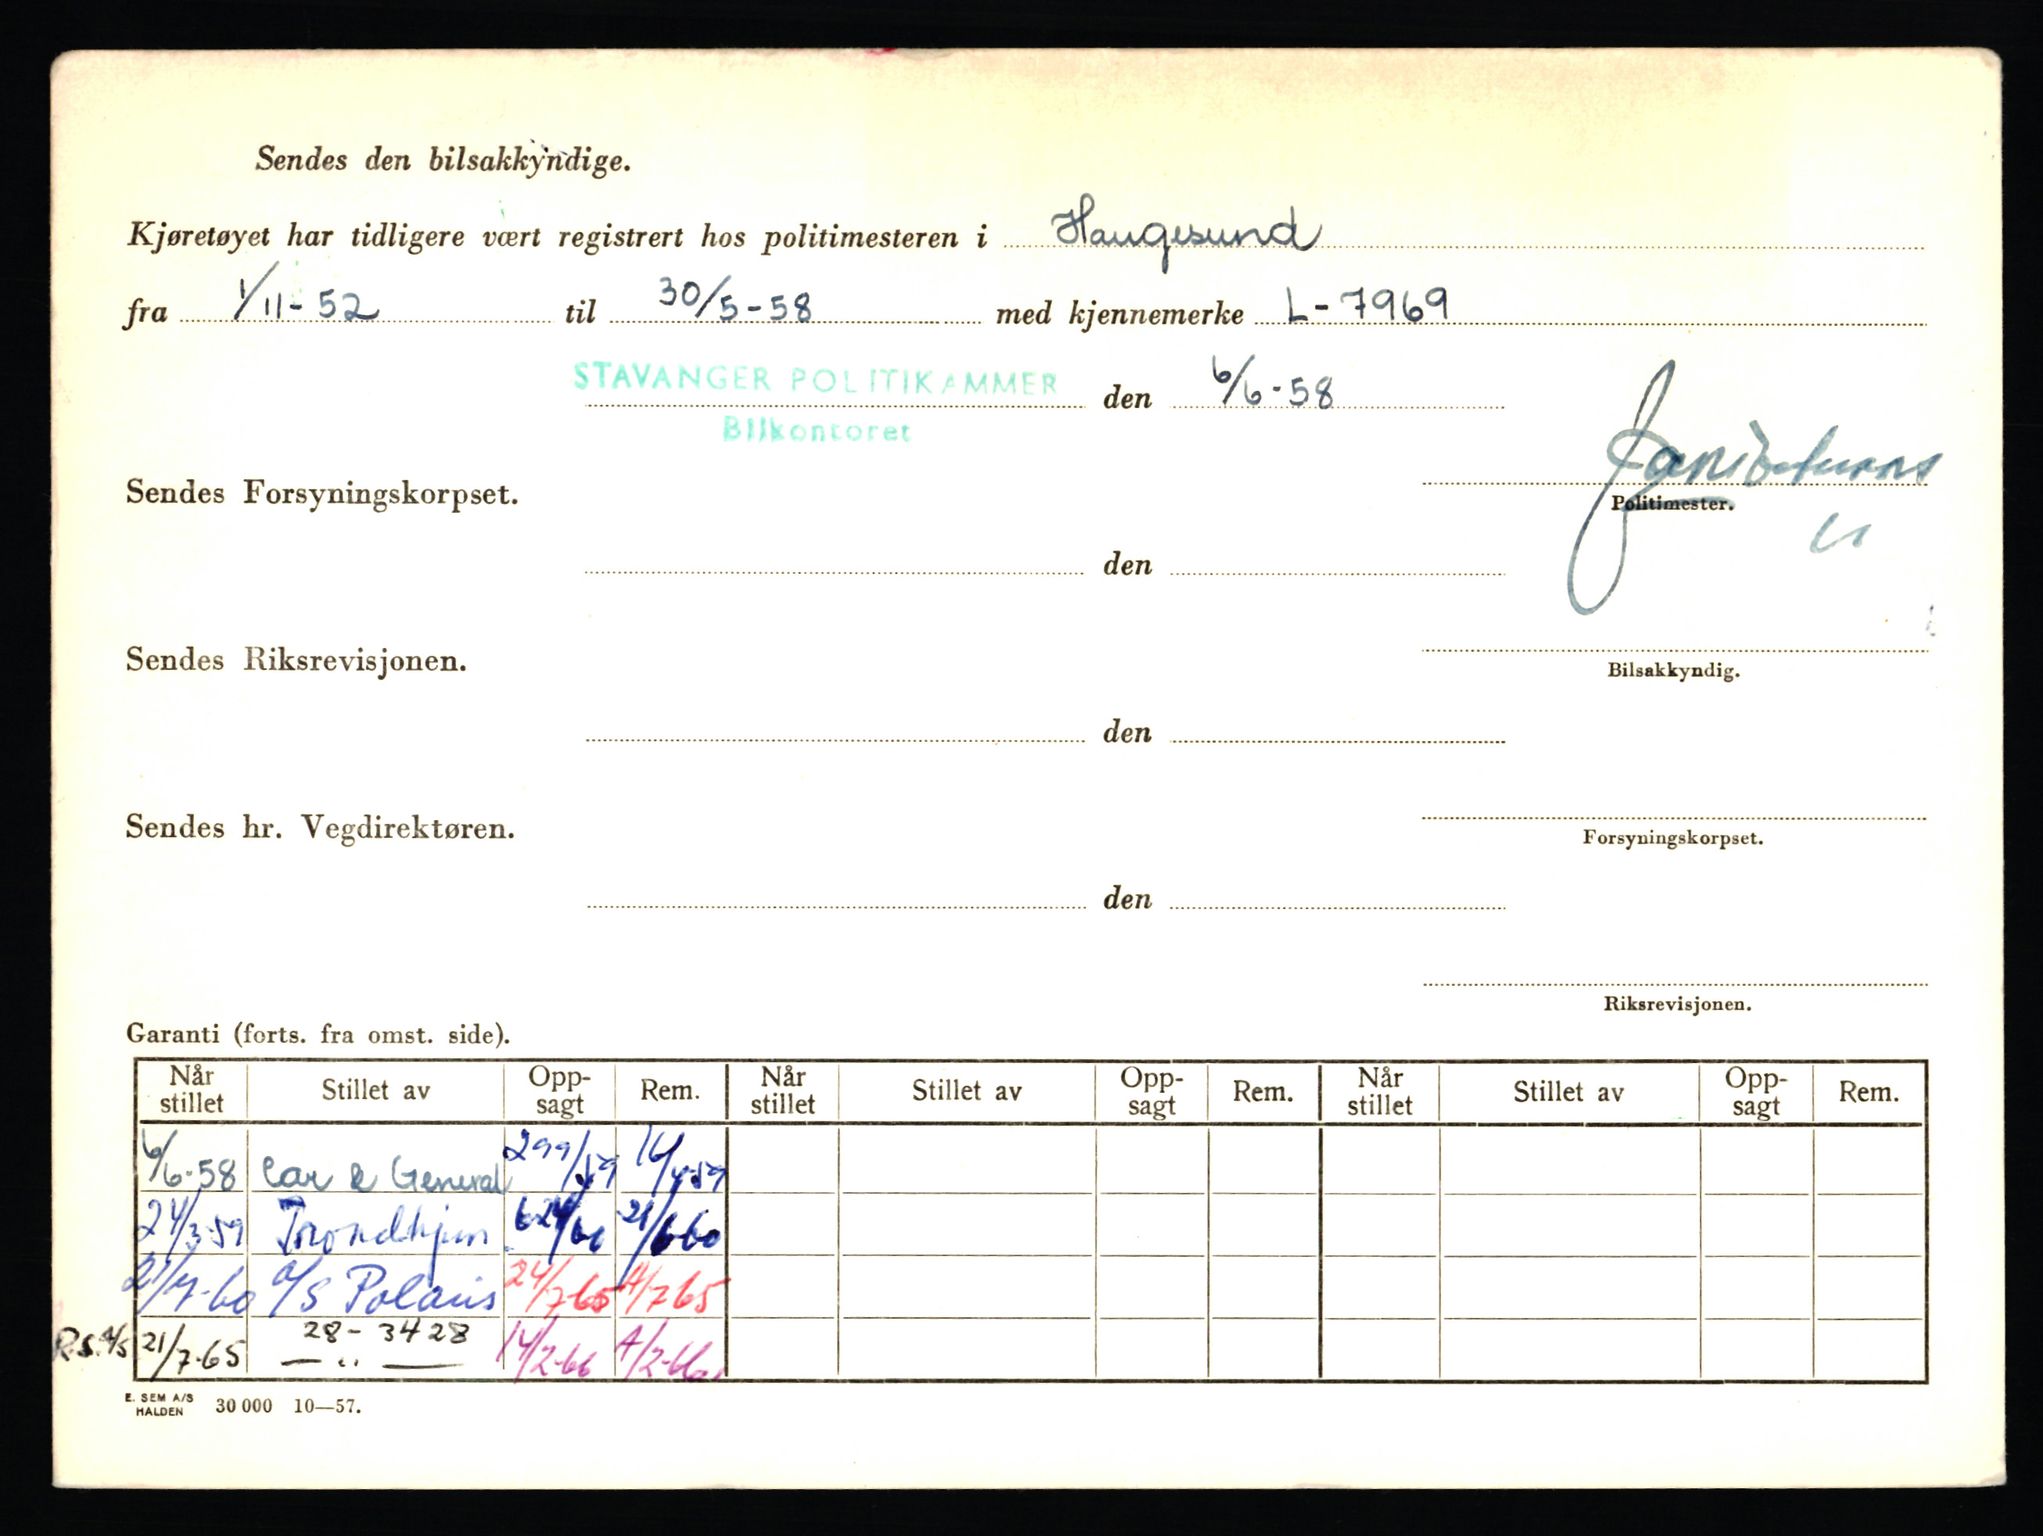 Sendes den bilsakkyndige.
Kjøretøyet har tidligere vært registrert hos politimesteren i Haugesund
fra 1/11-52 til 30/5-58 med kjennemerke L-7969
STAVANGER POLITIKAMMER den 6/6-58
Bilkontoret
Sendes Forsyningskorpset.
Politimester.
den
Sendes Riksrevisjonen.
Bilsakkyndig.
den
Sendes hr. Vegdirektøren.
Forsyningskorpset.
den
Riksrevisjonen.
Garanti (forts. fra omst. side).
Når stillet Stillet av Opp-sagt Rem. Når stillet Stillet av Opp-sagt Rem. Når stillet Stillet av Opp-sagt Rem.
6/6-58 Car & General
24/3-59 Trondhjem 21/6-60
21/7-60 a/s Polaris 24/7-65 A/7-65
28-3428
R.S. 21/7-65 — " — 14/2-66 A/2-66
E. SEM A/S
HALDEN 30 000 10—57.